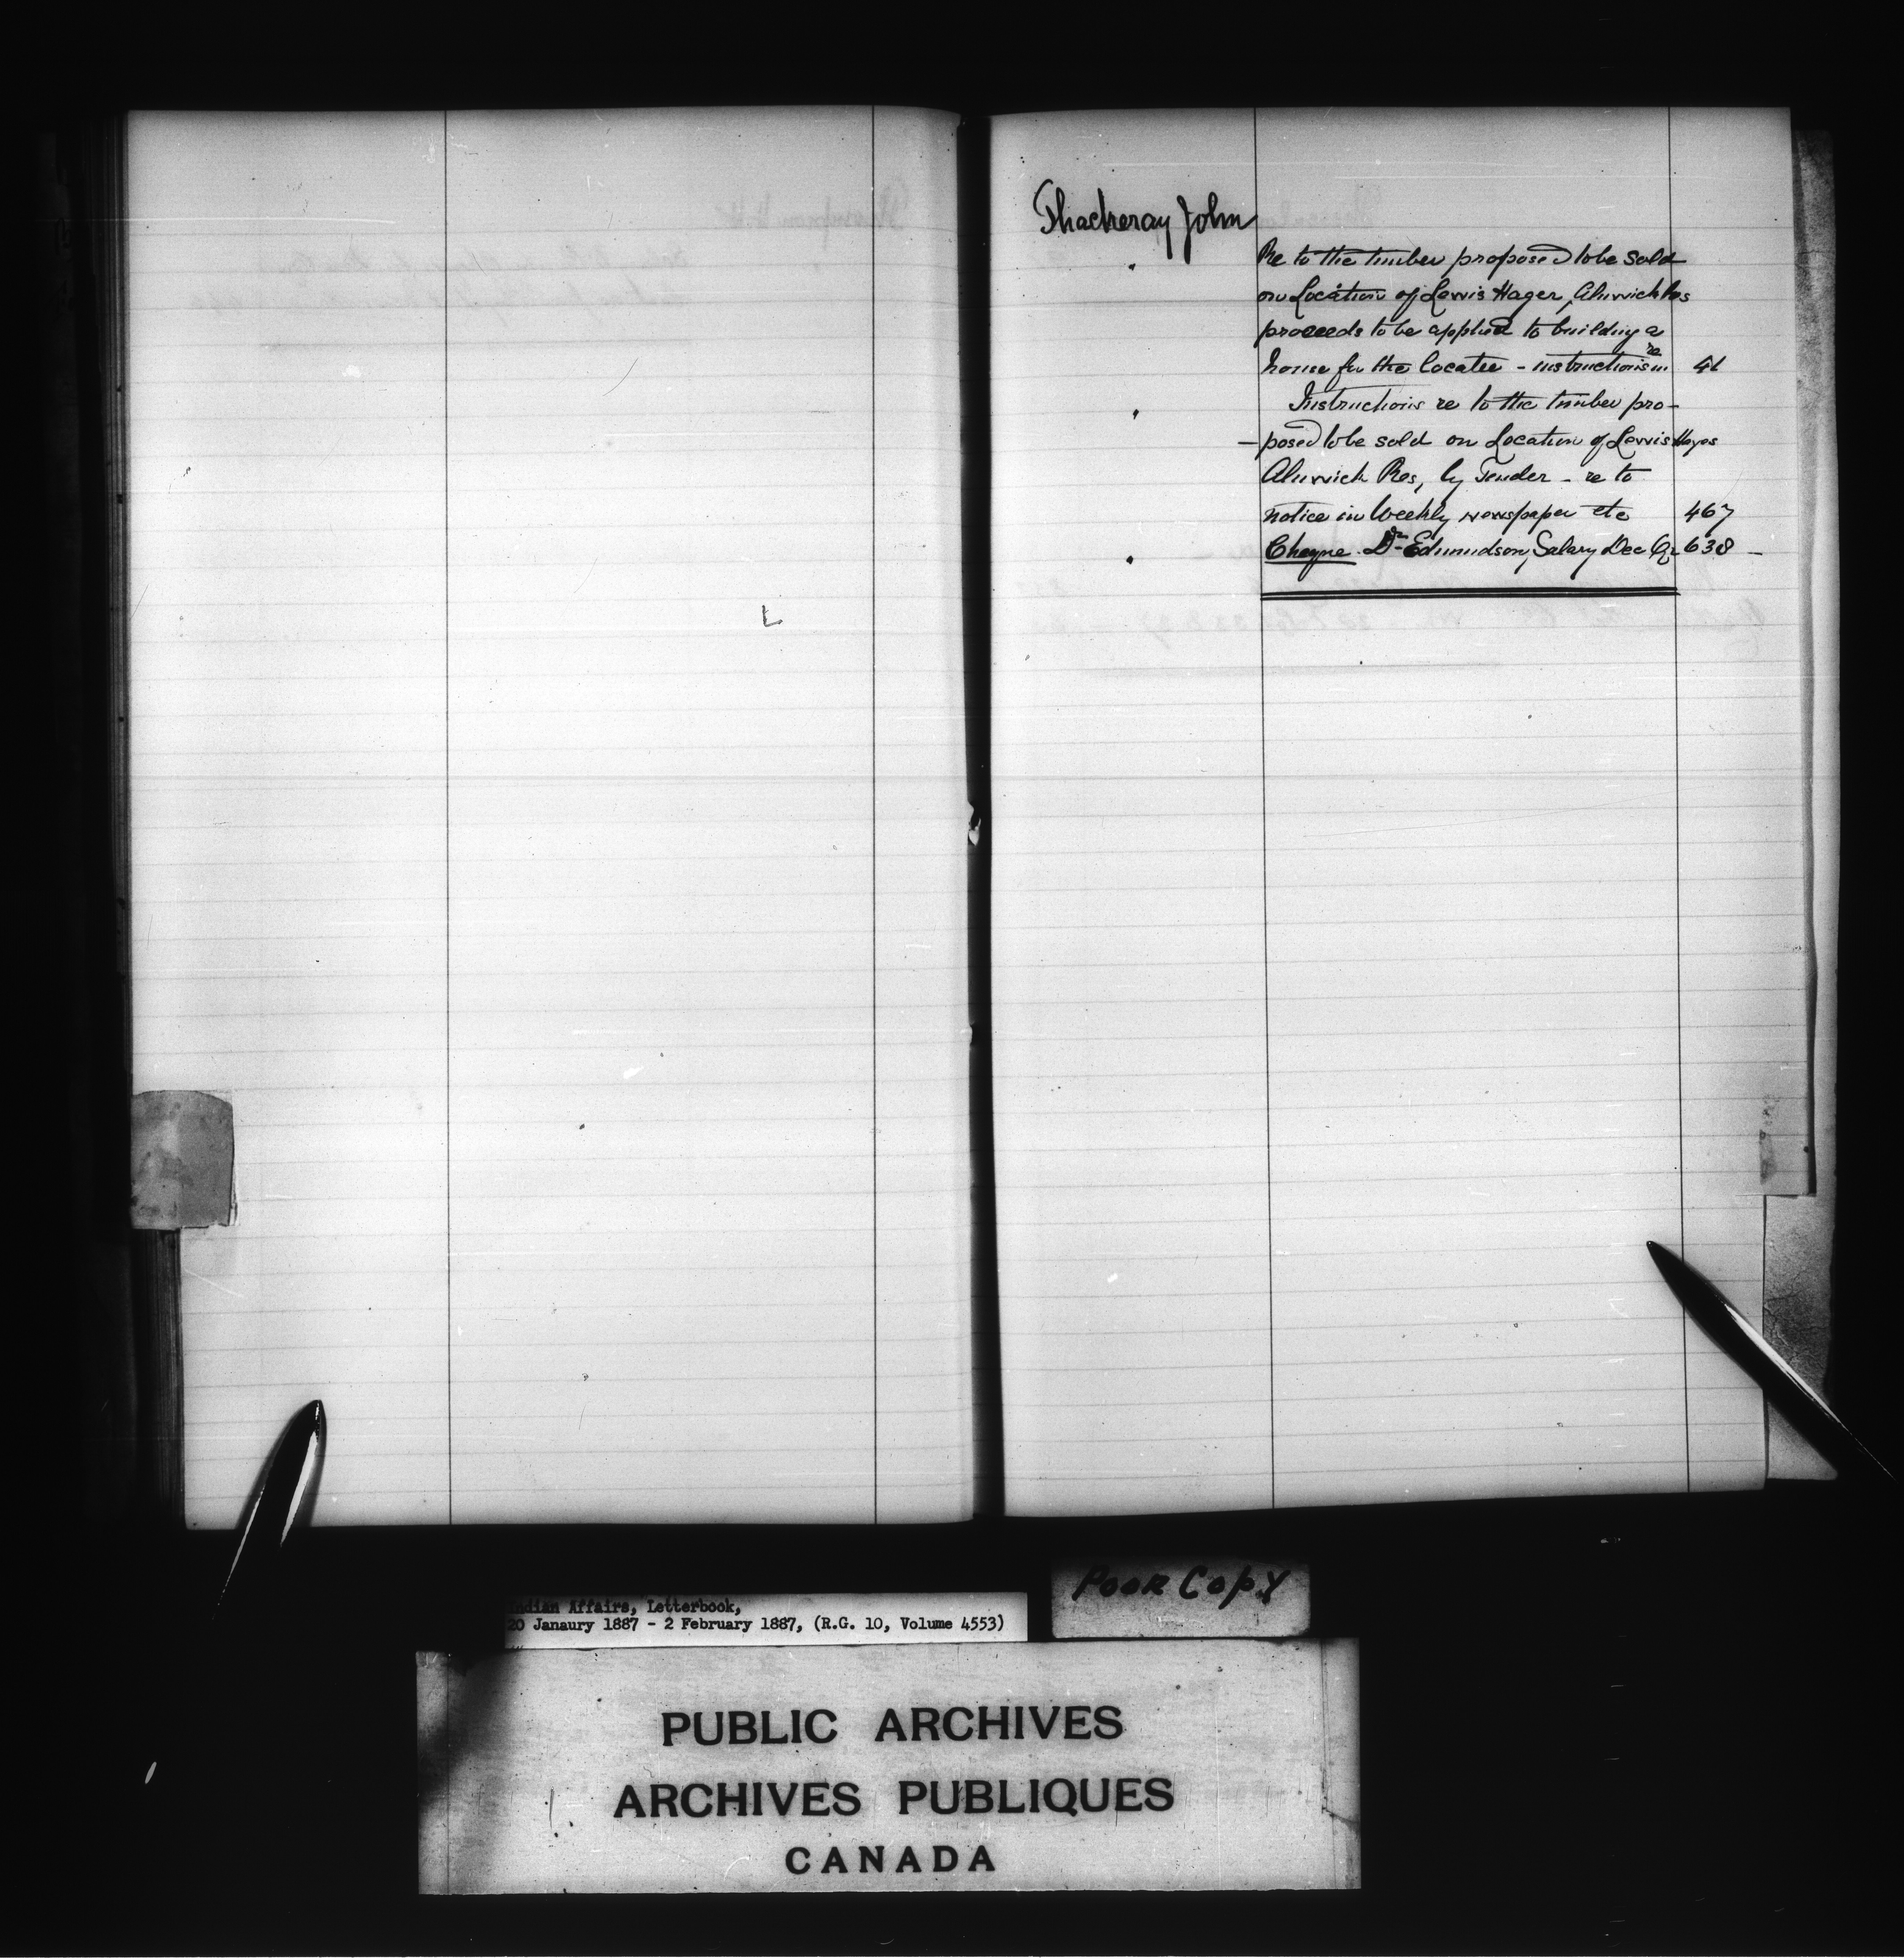 Thackeray John
Re to the timber proposed to be sold
on Location of Lewis Hager, Alnwick Res
proceeds to be applied to building a
house for the locatee - instructions re 41
Instructions re to the timber pro-
-posed to be sold on Location of Lewis Hayes
Alnwick Res, by Tender - re to
notice in Weekly newspaper etc 467
Cheque Dr Edmundson, Salary Dec Qr 638 -
Poor Copy
Indian Affairs, Letterbook,
20 Janaury 1887 - 2 February 1887, (R.G. 10, Volume 4553)
PUBLIC ARCHIVES
ARCHIVES PUBLIQUES
CANADA